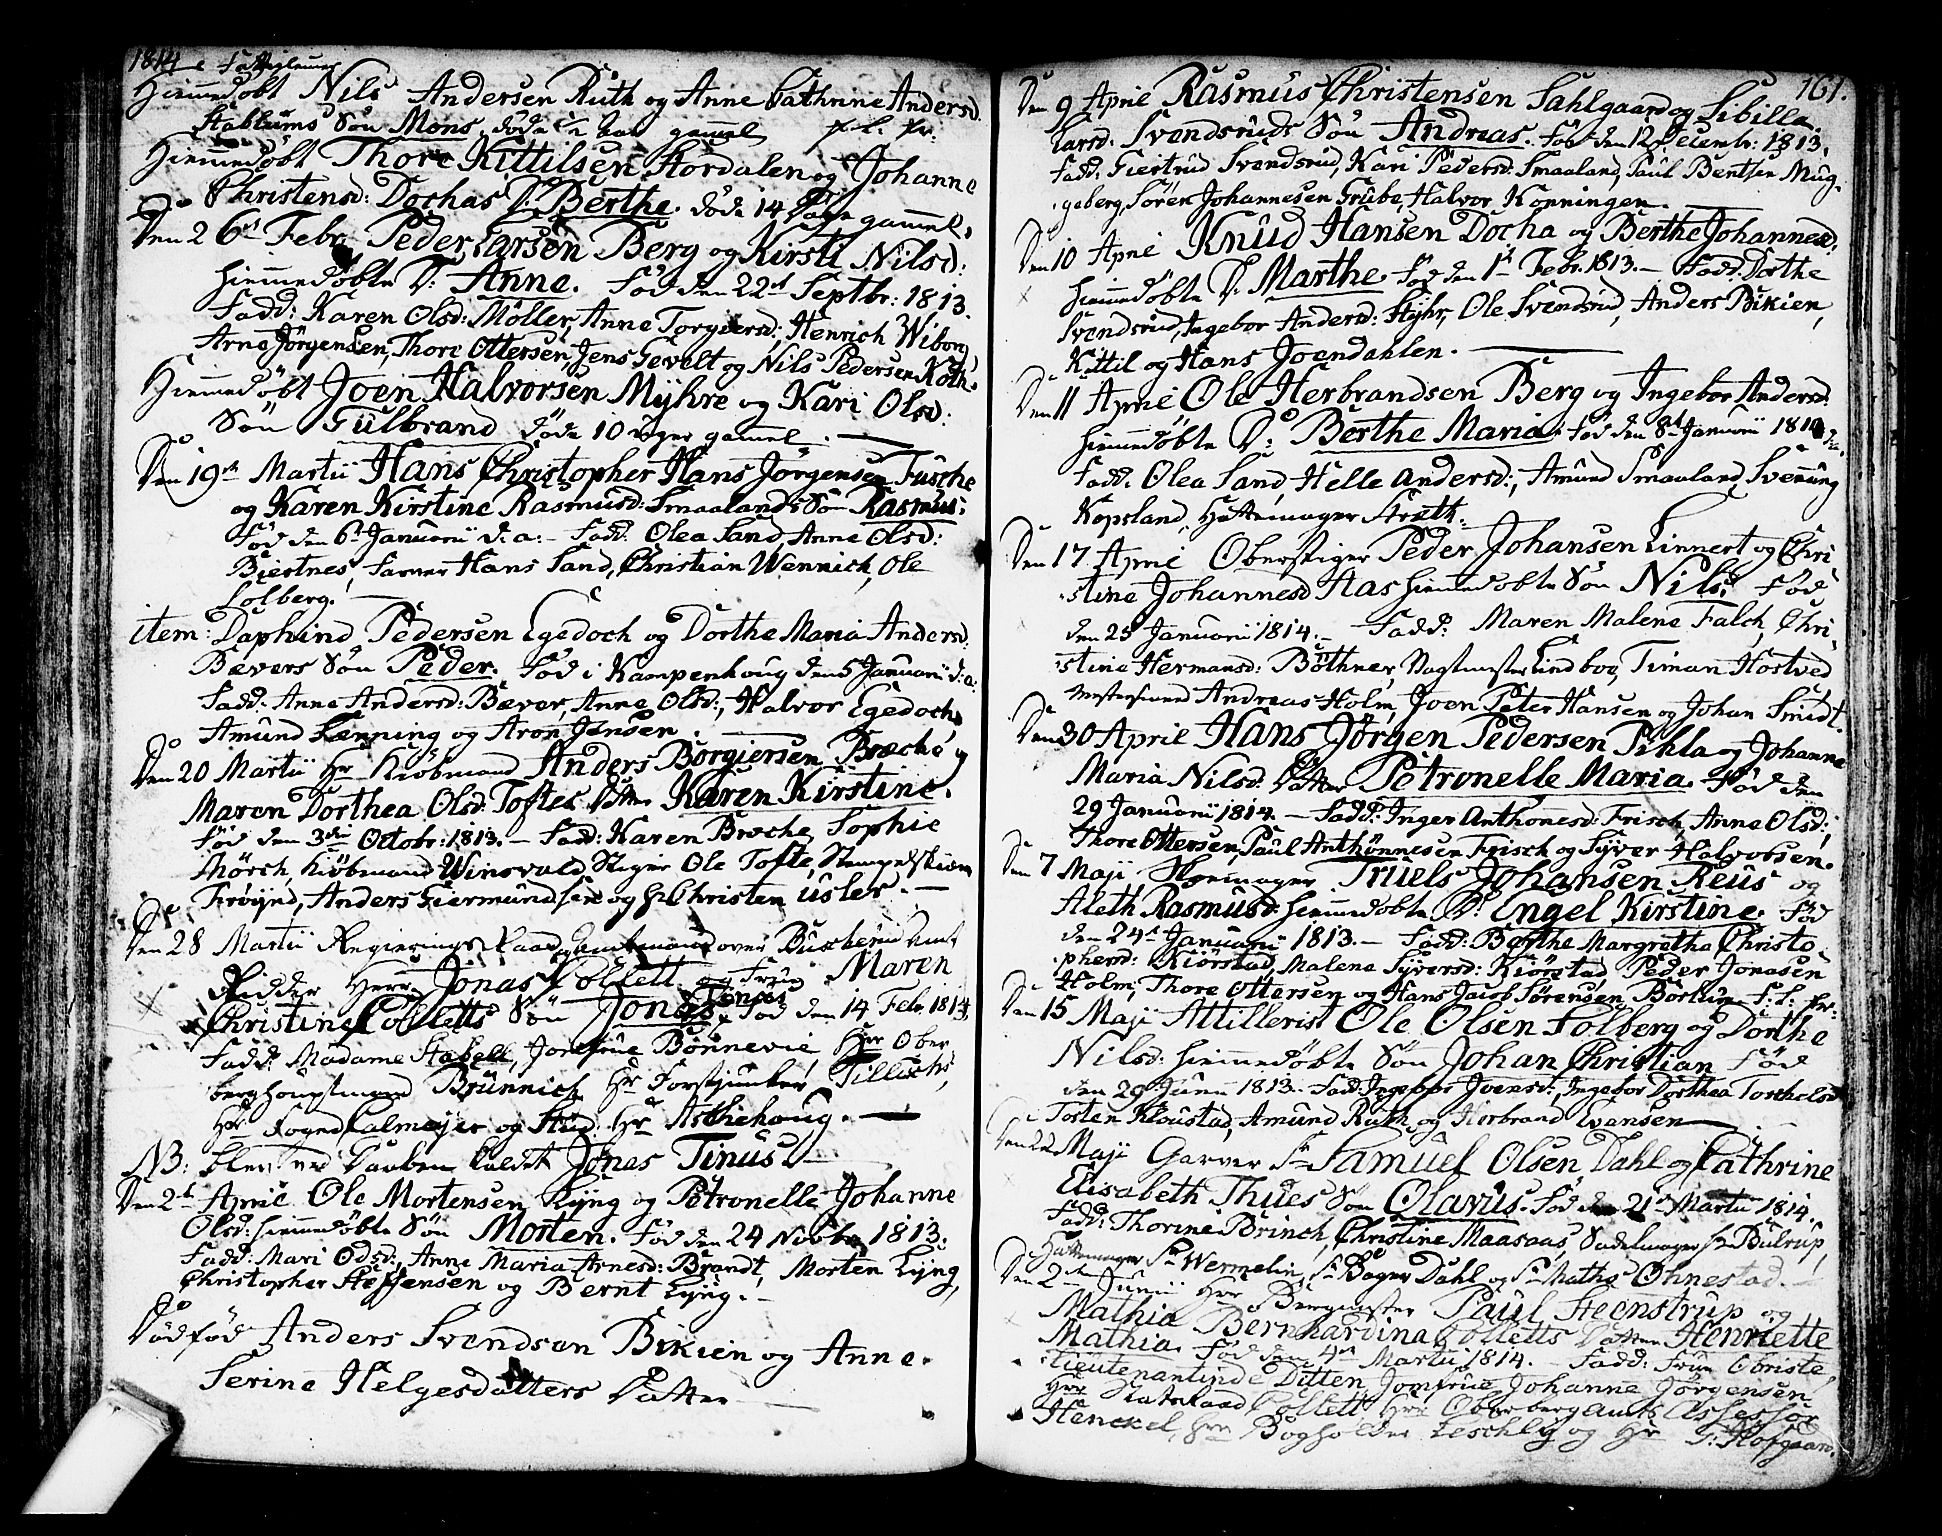 1814
Hiemmedøbt Nils Andersen Ruth og Anne Cathrine Andersd.
Stablums Søn Mons, døde 1/2 Aar gammel
Hiemmedøbt Thore Kittilsen Hordalen og Johanne
Christensd: Dochas D. Berthe. døde 14 Dage gammel.
Den 26 Febr. Peder Larsen Berg og Kirsti Nilsd:
hiemmedøbte D: Anne. Fød den 22d Septbr: 1813.
Fadd: Karen Olsd: Möller, Anne Torgiersd: Henrich Wiborg,
Arne Jörgensen, Thore Ottersen, Jens Gevelt og Nils Pedersen Koth.
Hiemmedøbt Joen Halvorsen Mÿhre og Kari Olsd:
Søn Gulbrand døde 10 uger gammel.
Den 19de Martii Hans Christopher Hans Jörgensen Fusche
og Karen Kirstine Rasmusd: Smaalands Søn Rasmus.
Fød den 6te Januarii d: a: - Fadd: Olea Sand, Anne Olsd:
Biertnes, Farver Hans Sand, Christian Wennich, Ole
Solberg.
item: Daphind Pedersen Egedoch og Dorthe Maria Andersd:
Bævers Søn Peder. Fød i Kampenhoug den 5 Januarii d: a:
Fadd: Anne Andersd: Bæver, Anne Olsd:, Halvor Egedoch,
Amund Lænning og Aron Jensen.
Den 20 Martii Hr Kiøbmand Anders Borgiersen Bræche og
Maren Dorthea Olsd: Toftes Datter Karen Kirstine.
Fød den 3die Octobr: 1813. - Fadd: Karen Bræche, Sophie
Mörch, Kiøbmand Winsvald, Stiger Ole Tofte,
Frøynd, Anders Giermundsen og Hr Christen Usler. -
Den 28 Martii Regierings Raad og Amtmand over Buscherud Amt
Ridder Herr Jonas Collett og Frue Maren
Christine Colletts Søn Jonas Fød den 14 Febr. 1814.
Fadd: Madame Stabell, Jomfrue Bonnevie, Hr Ober
berghauptmand Brünnich, Hr Forstjunker Tillisch,
Hr Fogd Calmeÿer og Stud: Hr Aschehoug. -
NB: blev ved Daaben kaldt Jonas Tinus. -
Den 2de April Ole Mortensen Lÿng og Petronelle Johanne
Olsd: hiemmedøbte Søn Morten. Fød den 24 Novbr. 1813.
Fadd: Mari Odsd:, Anne Maria Arnesd: Brandt, Morten Lÿng,
Christopher Steffensen og Bernt Lÿng. -
Dødfød Anders Svendsen Bikien og Anne
Serine Helgesdatters Datter
161.
Den 9 April Rasmus Christensen Sahlgaard og Sibilla
Larsd. Svendsruds Søn Andreas. Fød den 12 Decembr: 1813.
Fadd: Giertrud Svendsrud, Kari Pedersd: Smaaland, Paul Bentsen Mug-
geberg, Søren Johannesen Grube, Halvor Konningen.
Den 10 April Knud Hansen Docha og Berthe Johannesd:
hiemmedøbte D: Marthe. Fød den 1te Febr. 1813. - Fadd: Dorthe
Svendsrud, Ingebor Andersd: Mÿhr, Ole Svendsrud, Anders Bikien,
Kittil og Hans Joendahlen.
Den 11 April Ole Herbrandsen Berg og Ingebor Andersd:
hiemmedøbte D: Berthe Maria. Fød den 8de Januarii 1814
Fadd: Olea Sand, Helle Andersd:, Amund Smaaland, Svenung
Kopsland, Hattemager Strøth.
Den 17 April Oberstiger Peder Johansen Linnert og Chri-
stine Johannesd Haas hiemmedøbte Søn Nils. Fød
den 25 Januarii 1814. - Fadd: Maren Malene Falch, Chri-
stine Hermansd: Böthner, Vagtmester Lindboe, Timan Hostved
Mestersvend Andreas Holm, Joen Peter Hansen og Johan Smidt.
Den 30 April Hans Jörgen Pedersen Pihla og Johanne
Maria Nilsd: Datter Petronelle Maria. Fød den
29 Januarii 1814. - Fadd: Inger Anthonesd: Frisch, Anne Olsd:,
Thore Ottersen, Paul Anthonnesen Frisch og Syver Halvorsen.
Den 7 Maji Skomager Truels Johansen Reus og
Aleth Rasmusd: hiemmedøbte D: Engel Kirstine. Fød
den 24de Januarii 1813. - Fadd: Berthe Margretha Christo-
phersd: Kiörstad, Malene Syversd: Kiörstad, Peder Jonasen
Holm, Thore Ottersen og Hans Jacob Sörensen Börlum
Den 15 Maji Attillerist Ole Olsen Solberg og Dorthe
Nilsd: hiemmedøbte Søn Johan Christian Fød
den 29 Junii 1813. - Fadd: Ingebor Joensd:, Ingebor Dorthea Torchelsd:
Tosten Klovstad, Amund Ruth og Herbrand Evensen
Den 22 Maji Garver Sr Samuel Olsen Dahl og Cathrine
Elisabeth Thues Søn Olavus. Fød den 21de Martii 1814.
Fadd: Thorine Brinch, Christine Maasaas, Sadelmager Hr Bulrup,
Hattemager Sr Wermelin, Sr Bager Dahl og Sr Maths Ohnestad. -
Den 2den Junii Herr Bergmester Paul Steenstrup og
Mathia Bernhardina Colletts Datter Henriette
Mathia. Fød den 4de Martii 1814. - Fadd: Frue Obriste
Lieutenantinde Ditten, Jomfrue Johanne Jörgensen
Herr Etatsraad Collett, Hr Oberbergamts Assessor
Henckel, Hr Bogholder Leschly og Hr J: Hofgaard.